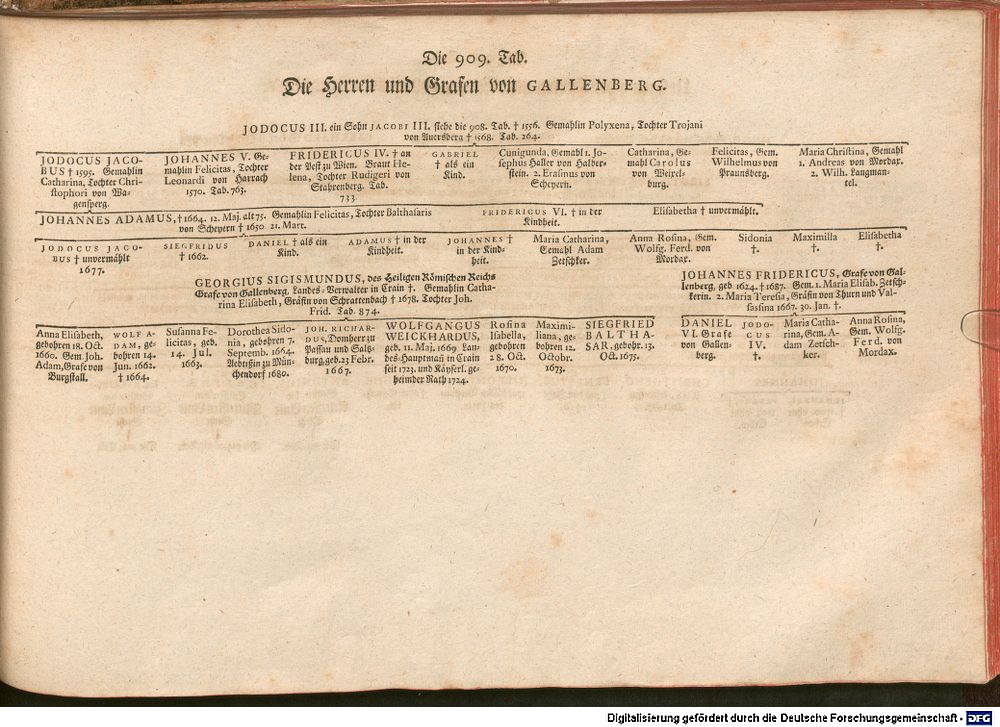 Die 909. Tab.
Die Herren und Grafen von GALLENBERG.
JODOCUS III. ein Sohn JACOBI III. siehe die 908. Tab. † 1556. Gemahlin Polyxena, Tochter Trojani
von Auersberg † 1568. Tab. 264.
JODOCUS JACO-
BUS † 1595. Gemahlin
Catharina, Tochter Chri-
stophori von Wa-
gensperg.
JOHANNES V. Ge-
mahlin Felicitas, Tochter
Leonardi von Harrach
1570. Tab. 763.
FRIDERICUS IV. † an
der Pest zu Wien. Braut He-
lena, Tochter Rudigeri von
Stahrenberg. Tab.
733.
GABRIEL
† als ein
Kind.
Cunigunda, Gemahl 1. Jo-
sephus Haller von Halber-
stein. 2. Erasmus von
Scheyern.
Catharina, Ge-
mahl Carolus
von Weixel-
burg.
Felicitas, Gem.
Wilhelmus von
Praunsberg.
Maria Christina, Gemahl
1. Andreas von Mordax.
2. Wilh. Langman-
tel.
JOHANNES ADAMUS, † 1664. 12. Maj. alt 75. Gemahlin Felicitas, Tochter Balthasaris
von Scheyern † 1650 21. Mart.
FRIDERICUS VI. † in der
Kindheit.
Elisabetha † unvermählt.
JODOCUS JACO-
BUS † unvermählt
1677.
SIEGFRIDUS
† 1662.
DANIEL † als ein
Kind.
ADAMUS † in der
Kindheit.
JOHANNES †
in der Kind-
heit.
Maria Catharina,
Gemahl Adam
Zetschker.
Anna Rosina, Gem.
Wolfg. Ferd. von
Mordax.
Sidonia
†.
Maximilla
†.
Elisabetha
†.
GEORGIUS SIGISMUNDUS, des Heiligen Römischen Reichs
Grafe von Gallenberg, Landes-Verwalter in Crain †. Gemahlin Catha-
rina Elisabeth, Gräfin von Schrattenbach † 1678. Tochter Joh.
Frid. Tab. 874.
JOHANNES FRIDERICUS, Grafe von Gal-
lenberg, geb. 1624. † 1687. Gem. 1. Maria Elisab. Zetsch-
kerin. 2. Maria Teresia, Gräfin von Thurn und Val-
sassina 1667. 30. Jan. †.
Anna Elisabeth,
gebohren 18. Oct.
1660. Gem. Joh.
Adam, Grafe von
Burgstall.
WOLF A-
DAM, ge-
bohren 14.
Jun. 1662.
† 1664.
Susanna Fe-
licitas, geb.
14. Jul.
1663.
Dorothea Sido-
nia, gebohren 7.
Septemb. 1664.
Aebtißin zu Mün-
chendorf 1680.
JOH. RICHAR-
DUS, Domherr zu
Passau und Saltz-
burg, geb. 23 Febr.
1667.
WOLFGANGUS
WEICKHARDUS,
geb. 11. Maj. 1669 Lan-
des-Hauptmañ in Crain
seit 1723. und Käyserl. ge-
heimder Rath 1724.
Rosina
Isabella,
gebohren
28. Oct.
1670.
Maximi-
liana, ge-
bohren 12.
Octobr.
1673.
SIEGFRIED
BALTHA-
SAR, gebohr. 13.
Oct. 1675.
DANIEL
VI. Grafe
von Gallen-
berg.
JODO-
CUS
IV.
†.
Maria Catha-
rina, Gem. A-
dam Zetsch-
ker.
Anna Rosina,
Gem. Wolfg.
Ferd. von
Mordax.
Digitalisierung gefördert durch die Deutsche Forschungsgemeinschaft - DFG